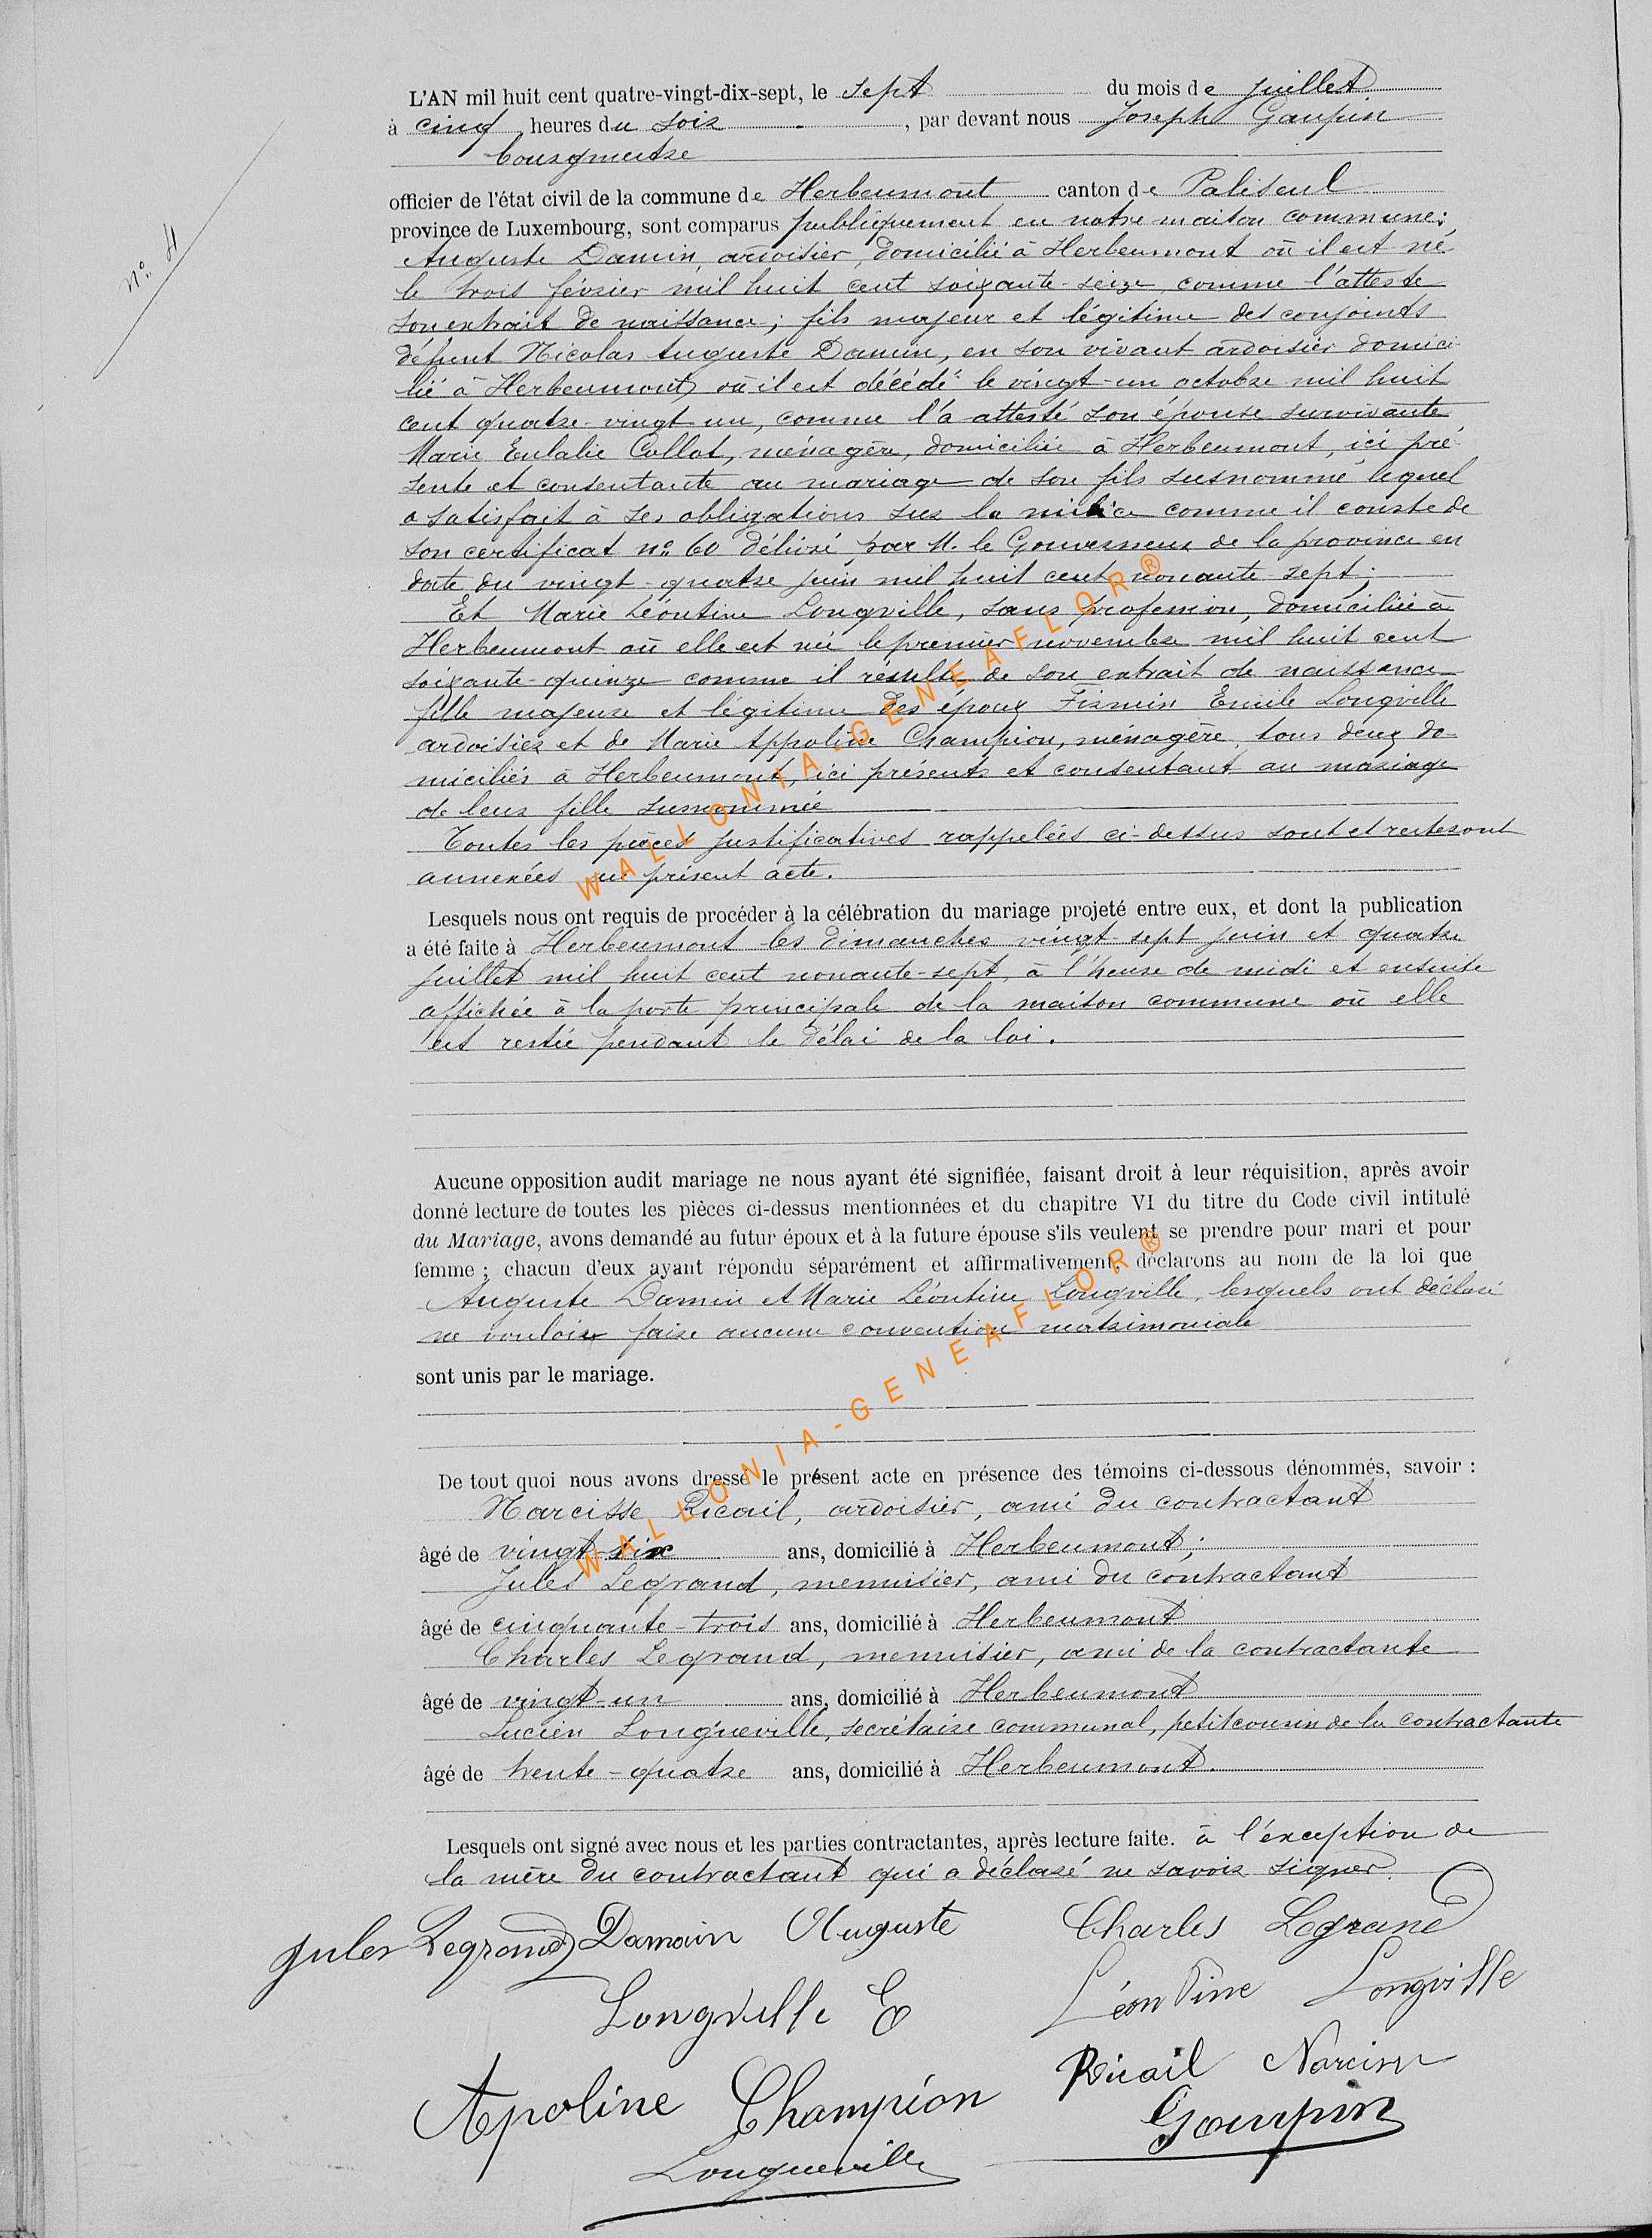 N° 4
L'AN mil huit cent quatre-vingt-dix-sept, le sept du mois de juillet
à cinq heures du soir, par devant nous Joseph Goupin
bourgmestre
officier de l'état civil de la commune de Herbeumont canton de Paliseul
province de Luxembourg, sont comparus publiquement en notre maison commune:
Auguste Damin, ardoisier, domicilié à Herbeumont où il est né
le trois février mil huit cent soixante-seize, comme l'atteste
son extrait de naissance; fils majeur et légitime des conjoints
défunt Nicolas Auguste Damin, en son vivant ardoisier domici-
lié à Herbeumont, où il est décédé le vingt-un octobre mil huit
cent quatre-vingt un, comme l'a attesté son épouse survivante
Marie Eulalie Collot, ménagère, domiciliée à Herbeumont, ici pré-
sente et consentante au mariage de son fils susnommé lequel
a satisfait à ses obligations sur la milice comme il conste de
son certificat n° 60 délivré par M. le Gouverneur de la province en
date du vingt-quatre juin mil huit cent nonante-sept;
Et Marie Léontine Longville, sans profession, domiciliée à
Herbeumont où elle est née le premier novembre mil huit cent
soixante-quinze comme il résulte de son extrait de naissance
fille majeure et légitime des époux Firmin Emile Longville
ardoisier et de Marie Appoline Champion, ménagère, tous deux do-
miciliés à Herbeumont, ici présents et consentant au mariage
de leur fille susnommée
Toutes les pièces justificatives rappelées ci-dessus sont et resteront
annexées au présent acte.
Lesquels nous ont requis de procéder à la célébration du mariage projeté entre eux, et dont la publication
a été faite à Herbeumont les dimanches vingt-sept juin et quatre
juillet mil huit cent nonante-sept, à l'heure de midi et ensuite
affichée à la porte principale de la maison commune où elle
est restée pendant le délai de la loi.
Aucune opposition audit mariage ne nous ayant été signifiée, faisant droit à leur réquisition, après avoir
donné lecture de toutes les pièces ci-dessus mentionnées et du chapitre VI du titre du Code civil intitulé
du Mariage, avons demandé au futur époux et à la future épouse s'ils veulent se prendre pour mari et pour
femme ; chacun d'eux ayant répondu séparément et affirmativement, déclarons au nom de la loi que
Auguste Damin et Marie Léontine Longville, lesquels ont déclaré
ne vouloir faire aucune convention matrimoniale
sont unis par le mariage.
De tout quoi nous avons dressé le présent acte en présence des témoins ci-dessous dénommés, savoir :
Narcisse Ricail, ardoisier, ami du contractant
âgé de vingt-six ans, domicilié à Herbeumont;
Jules Legrand, menuisier, ami du contractant
âgé de cinquante-trois ans, domicilié à Herbeumont
Charles Legrand, menuisier, ami de la contractante
âgé de vingt-un ans, domicilié à Herbeumont
Lucien Longueville, secrétaire communal, petit cousin de la contractante
âgé de trente-quatre ans, domicilié à Herbeumont.
Lesquels ont signé avec nous et les parties contractantes, après lecture faite. à l'exception de
la mère du contractant qui a déclaré ne savoir signer.
Jules Legrand Damain Auguste Charles Legrand
Longville E Léontine Longville
Ricail Narcisse
Apoline Champion Goupin
Longueville
WALLONIA-GENEAFLOR®
WALLONIA-GENEAFLOR®